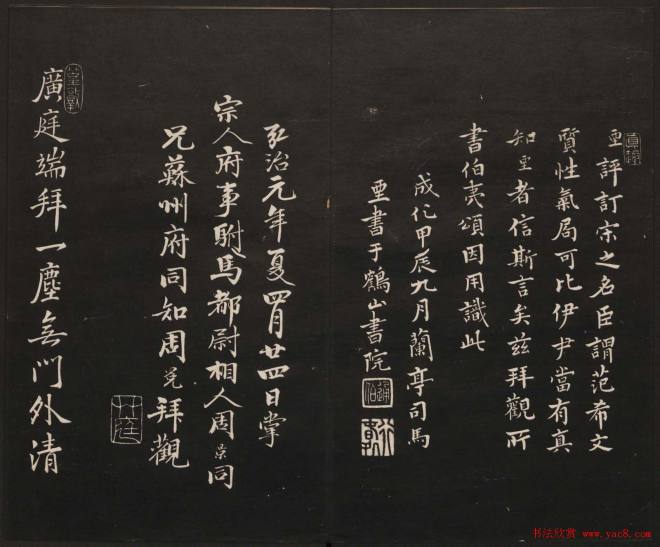 亜評訂宋之名臣謂范希文
質性氣局可比伊尹當有真
知亜者信斯言矣茲拜觀所
書伯夷頌因用識此
成化甲辰九月蘭亭司馬
亜書于鶴山書院
弘治元年夏四月廿四日掌
宗人府事駙馬都尉相人周景同
兄蘇州府同知周冕拜觀
廣庭端拜一塵無門外清
书法欣赏 www.yac8.com